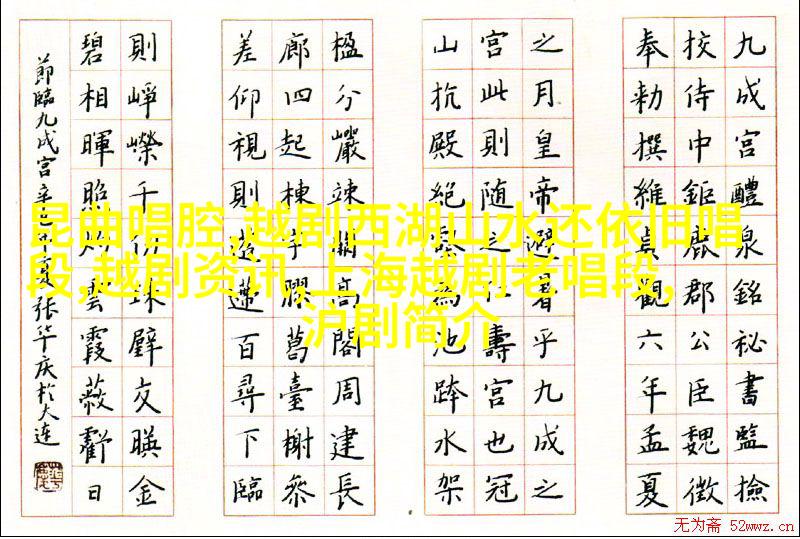 九成宫醴泉銘秘書監撿
挍侍中鉅鹿郡公臣魏徵
奉勑撰維貞觀六年孟夏
之月皇帝避暑乎九成之
宫此則随之仁壽宫也冠
山抗殿絶壑為池跨水架
楹分巖竦闕高閣周建長
廊四起棟宇膠葛臺榭叅
差仰視則迢遰百尋下臨
則崢嶸千仞珠璧交暎金
碧相暉照灼雲霞蔽虧日
節臨九成宫辛巳中夏张华庆於大连
昆曲唱腔,越剧西湖山水还依旧唱
段,越剧资讯,上海越剧老唱段,
沪剧简介
无为斋 52wwz.cn